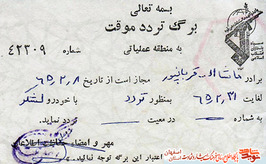 بسمه تعالی
برگ تردد موقت
به منطقه عملیاتی شماره ۴۲۳۰۹
برادر ماشاالله قربانپور مجاز است از تاریخ ۶۵/۲/۸
لغایت ۶۵/۲/۳۱ بمنظور تردد با خودرو لشکر
به شماره در معیت تردد نماید.
مهر و امضاء
اعتبار این برگه توجه نمائید.